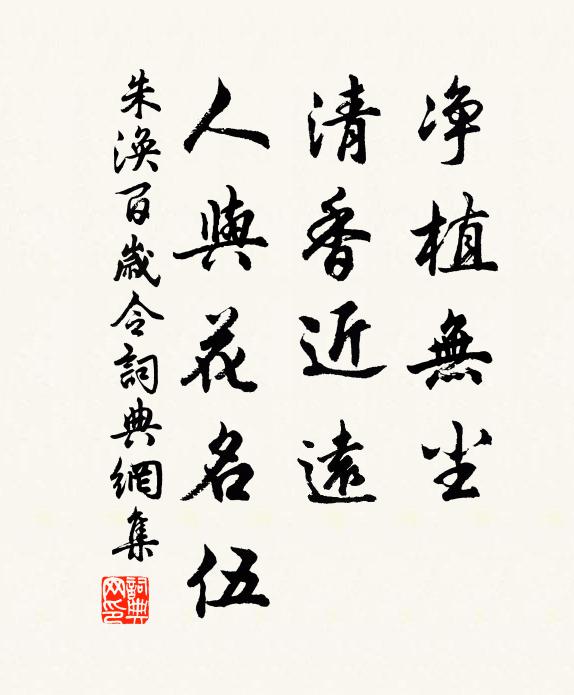 净植無尘
清香近遠
人與花名伍
朱渙百歲令詞典網集
詞典网印